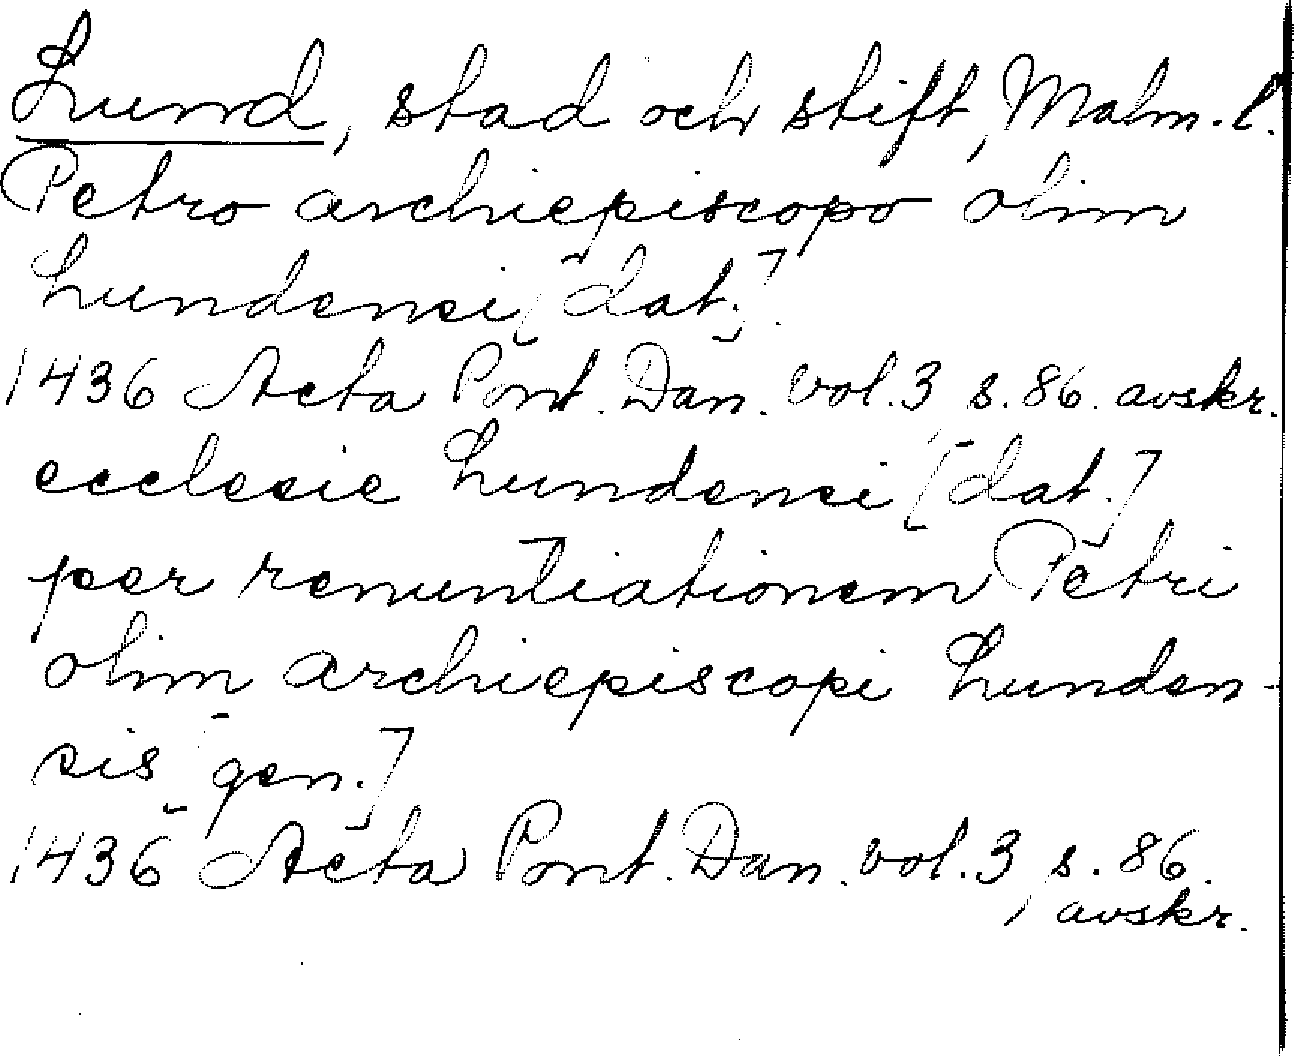 Lund, stad och stift, Malm. l.
Petro archiepiscopo olim
Lundensi [dat.].
1436 Acta Pont. Dan. vol. 3 s. 86. avskr.
ecclesie Lundensi [dat.]
per renuntiationem Petri
olim archiepiscopi Lunden-
sis [gen.]
1436 Acta Pont. Dan. vol. 3, s. 86.
avskr.